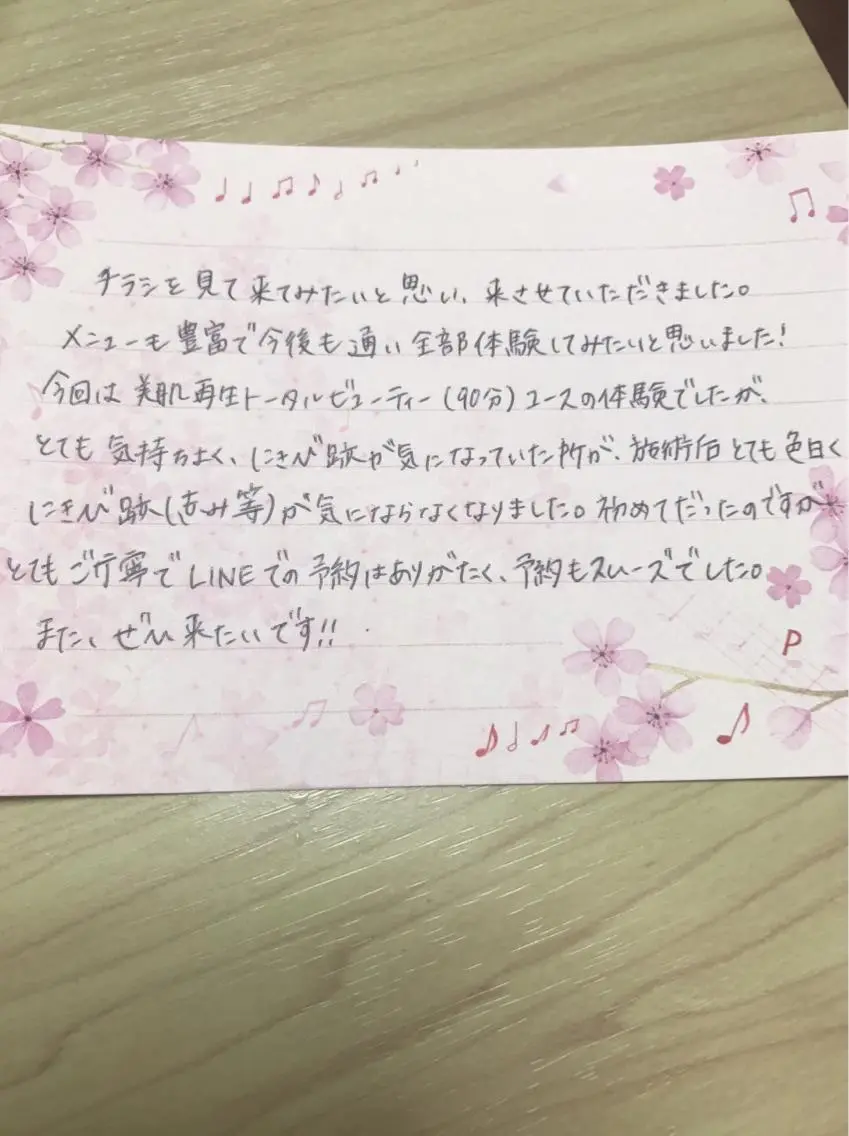 チラシを見て来てみたいと思い、来させていただきました。
メニューも豊富で今後も通い全部体験してみたいと思いました!
今回は美肌再生トータルビューティー(90分)コースの体験でしたが、
とても気持ちよく、にきび跡が気になっていた所が、施術后とても色白く
にきび跡(赤み等)が気にならなくなりました。初めてだったのですが
とてもご丁寧でLINEでの予約はありがたく、予約もスムーズでした。
また、ぜひ来たいです!!
P